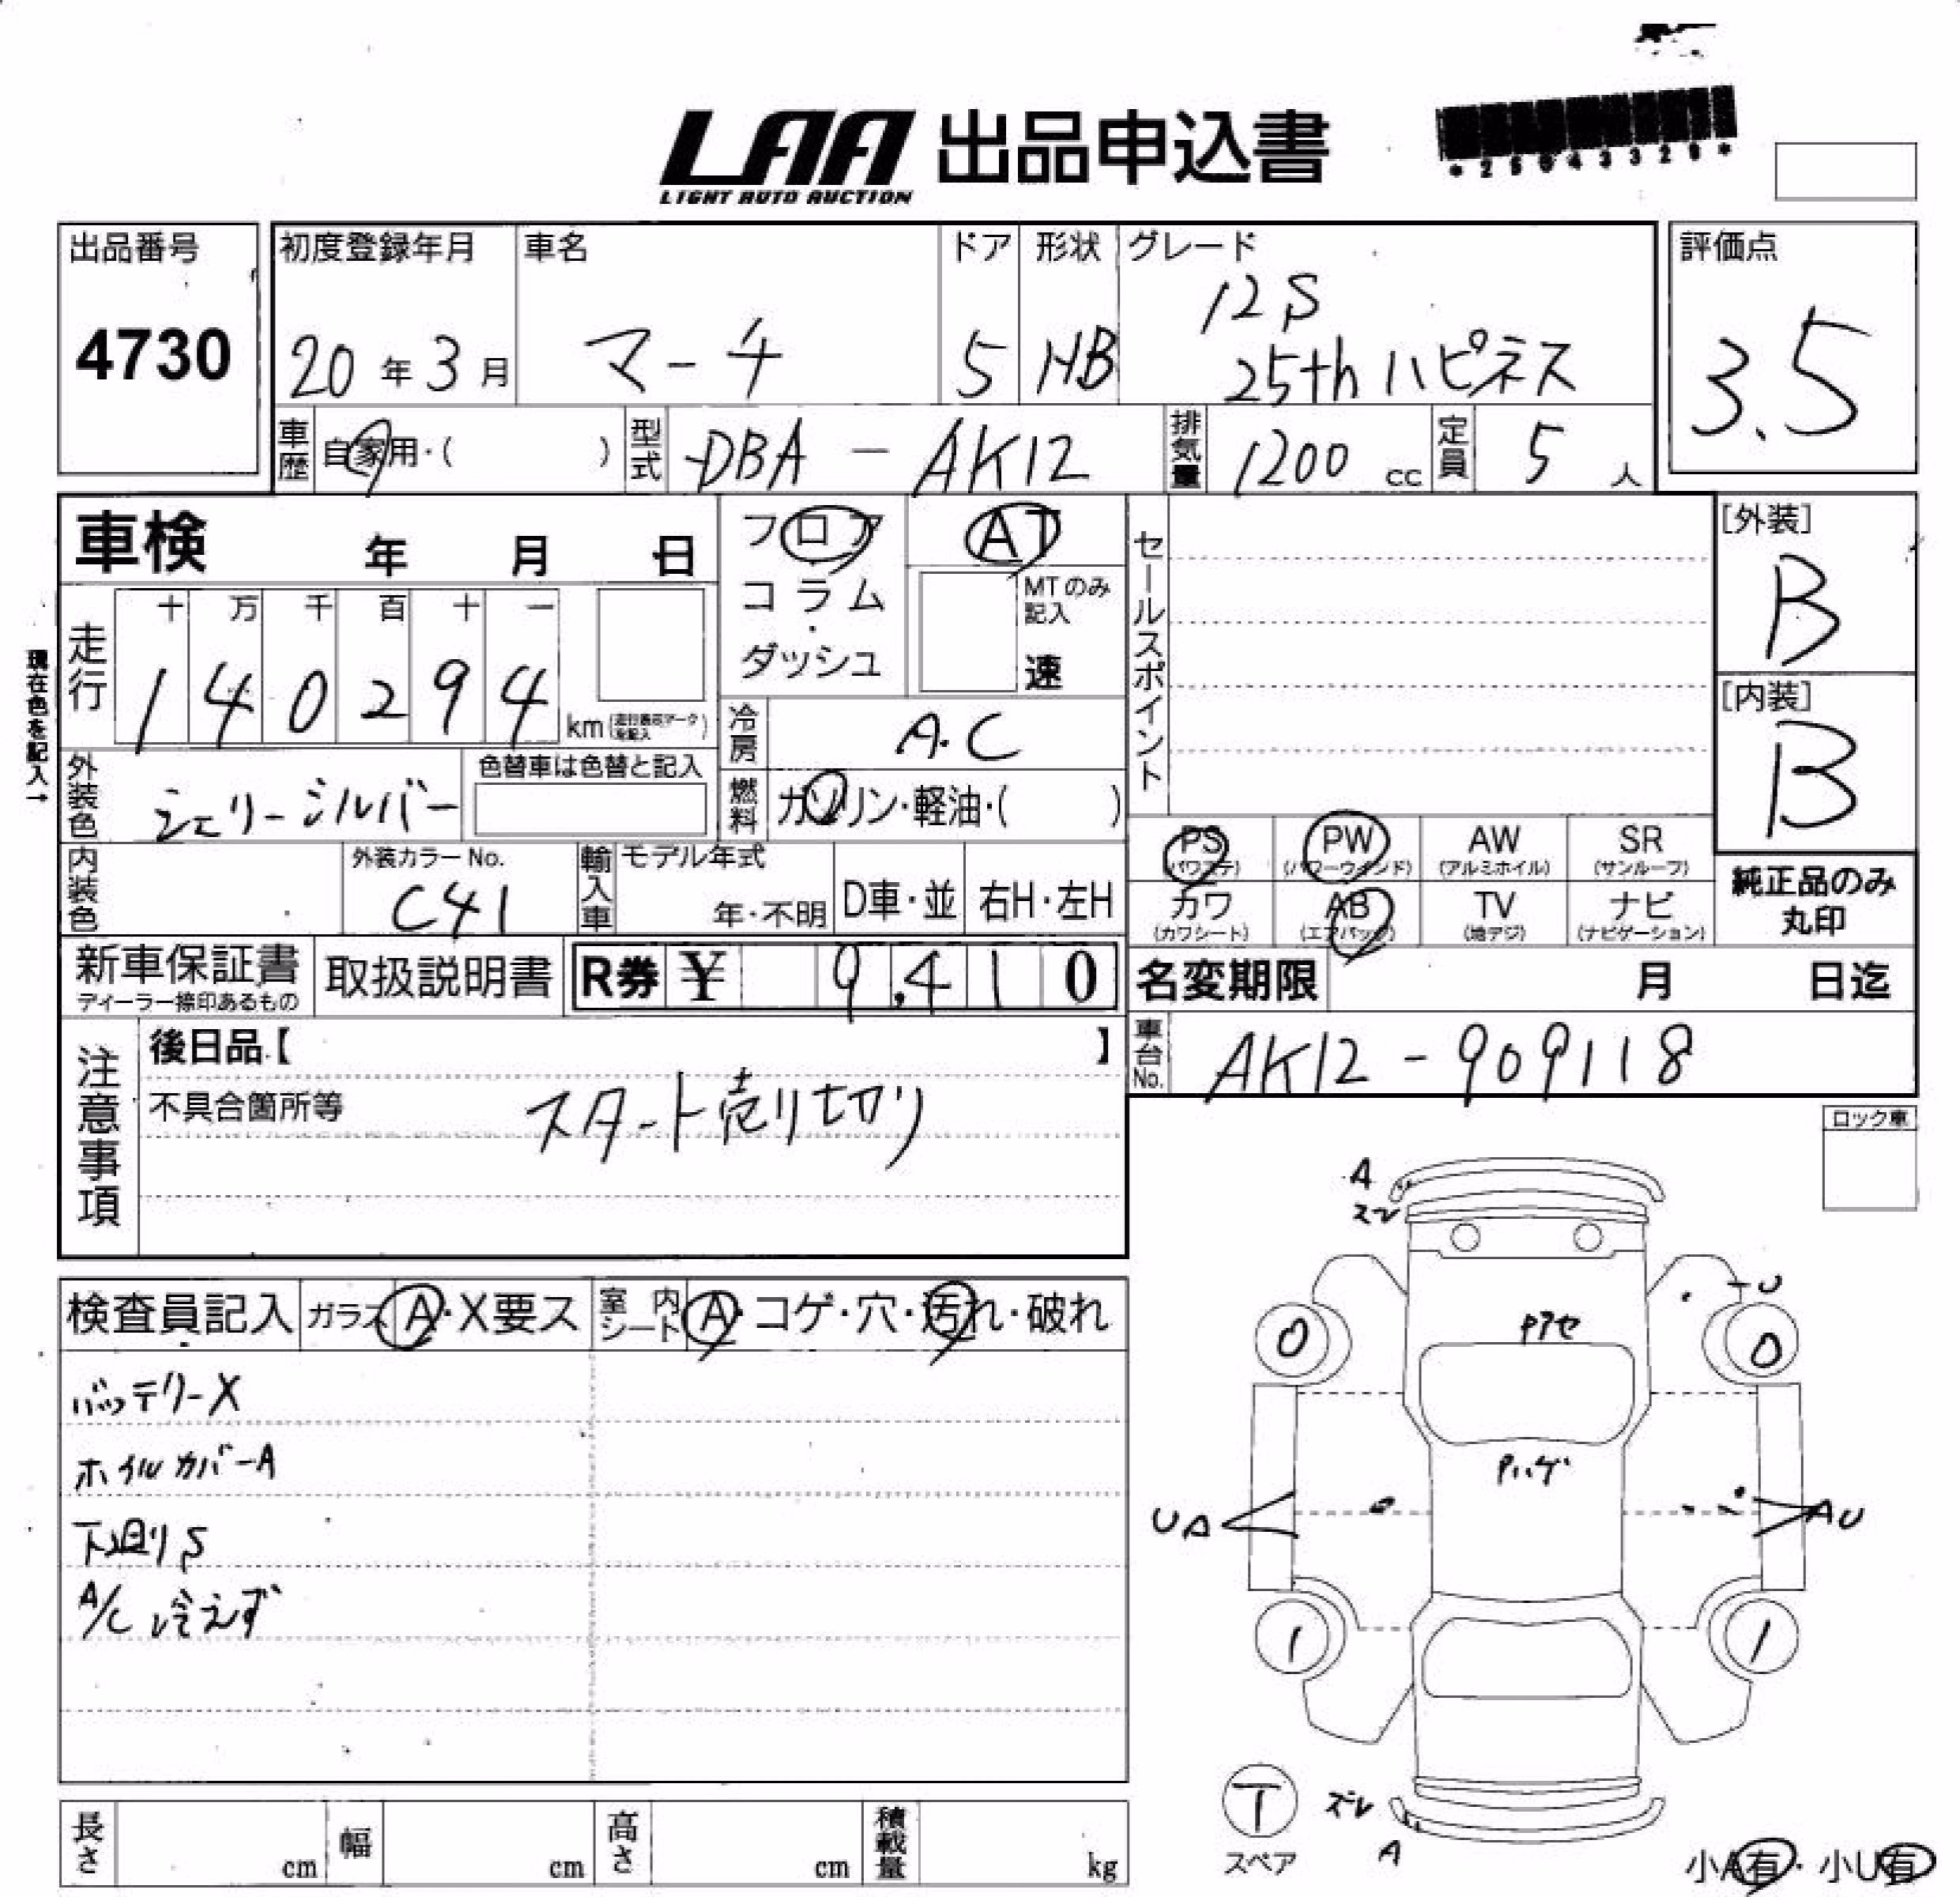 LAA 出品申込書
LIGHT AUTO AUCTION
*25043329*
出品番号
4730
初度登録年月
20年3月
車名
マーチ
ドア
5
形状
HB
グレード
12S
25th ハピネス
評価点
3.5
車歴
自家用・( )
型式
DBA - AK12
排気量
1200 cc
定員
5 人
車検 年 月 日
フロア
コラム
・
ダッシュ
AT
MTのみ記入
速
セールスポイント
[外装]
B
[内装]
B
現在色を記入→
走行
十 万 千 百 十 一
1 4 0 2 9 4 km
冷房
A.C
外装色
シェリーシルバー
色替車は色替と記入
燃料
ガソリン・軽油・( )
内装色
外装カラーNo.
C41
輸入車
モデル年式
年・不明
D車・並
右H・左H
PS (パワステ)
PW (パワーウインド)
AW (アルミホイル)
SR (サンルーフ)
カワ (カワシート)
AB (エアバッグ)
TV (地デジ)
ナビ (ナビゲーション)
純正品のみ
丸印
新車保証書
ディーラー捺印あるもの
取扱説明書
R券 ¥ 9,410
名変期限 月 日迄
車台No.
AK12-909118
注意事項
後日品【 】
不具合箇所等
スタート売り切り
ロック車
検査員記入
ガラス A・X要ス
室内シート A・コゲ・穴・汚れ・破れ
バッテリーX
ホイルカバーA
下廻りS
A/C 冷えず
A
ズレ
U
Pアセ
0
0
Pハゲ
UA
AU
1
1
T
スペア
ズレ
A
小A有・小U有
長さ cm
幅 cm
高さ cm
積載量 kg